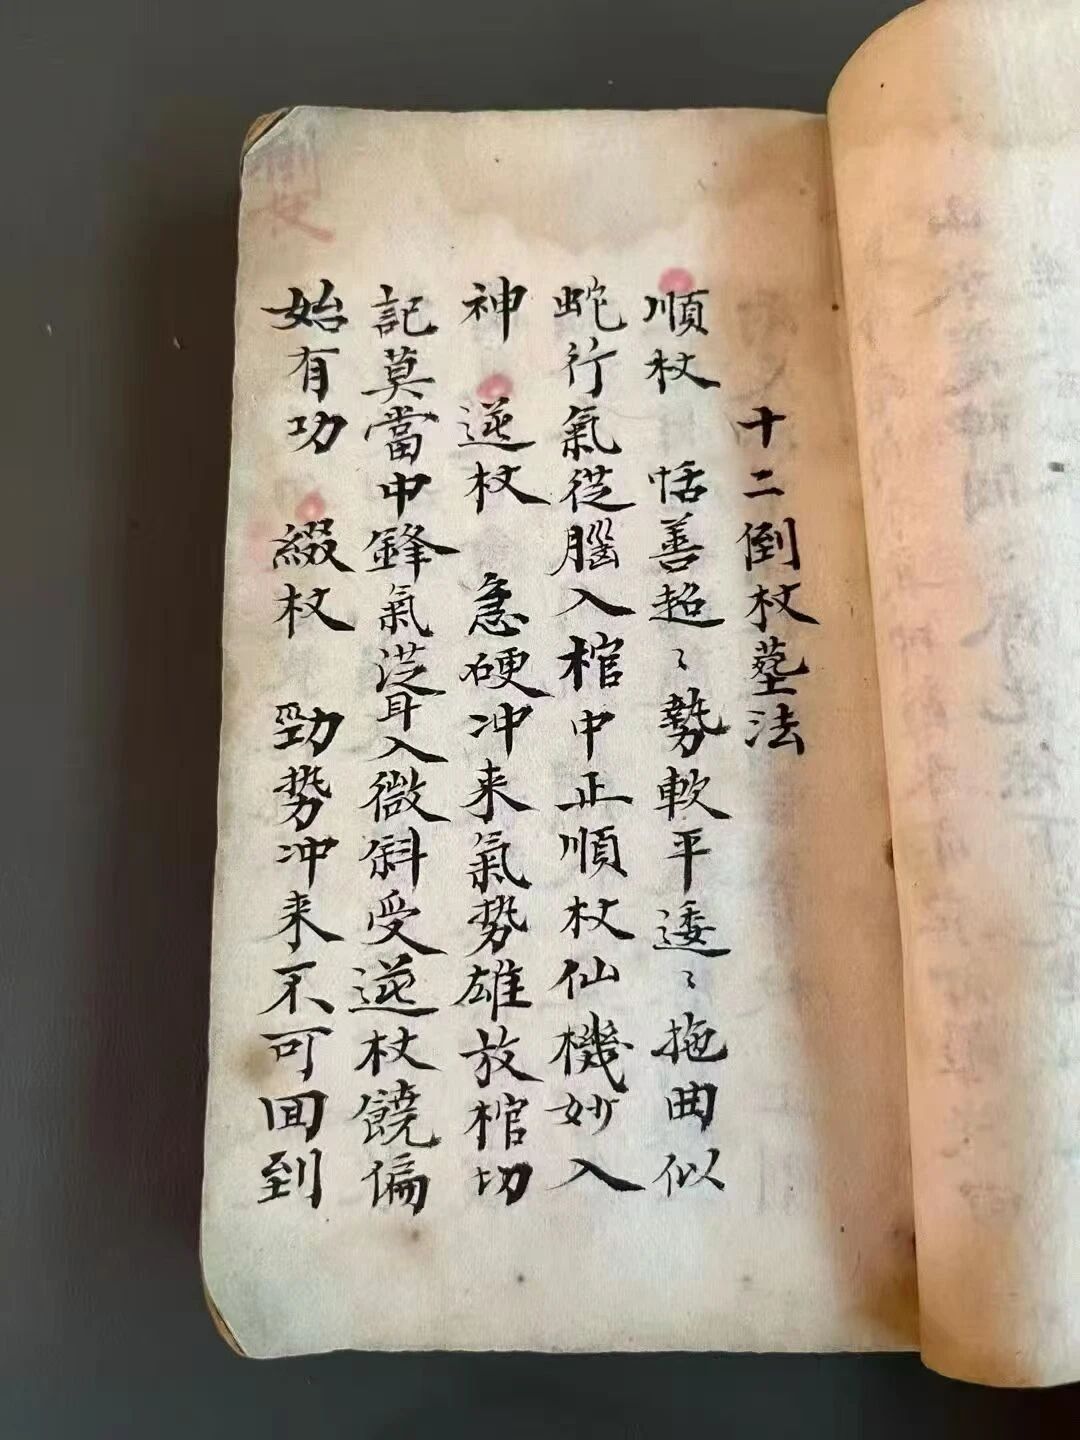 十二倒杖塟法
順杖 恬善超〻勢軟平逶〻拖曲似
蛇行氣從腦入棺中正順杖仙機妙入
神 逆杖 急硬冲来氣势雄放棺切
記莫當中鋒氣從耳入微斜受逆杖饒偏
始有功 綴杖 勁势冲来不可回到